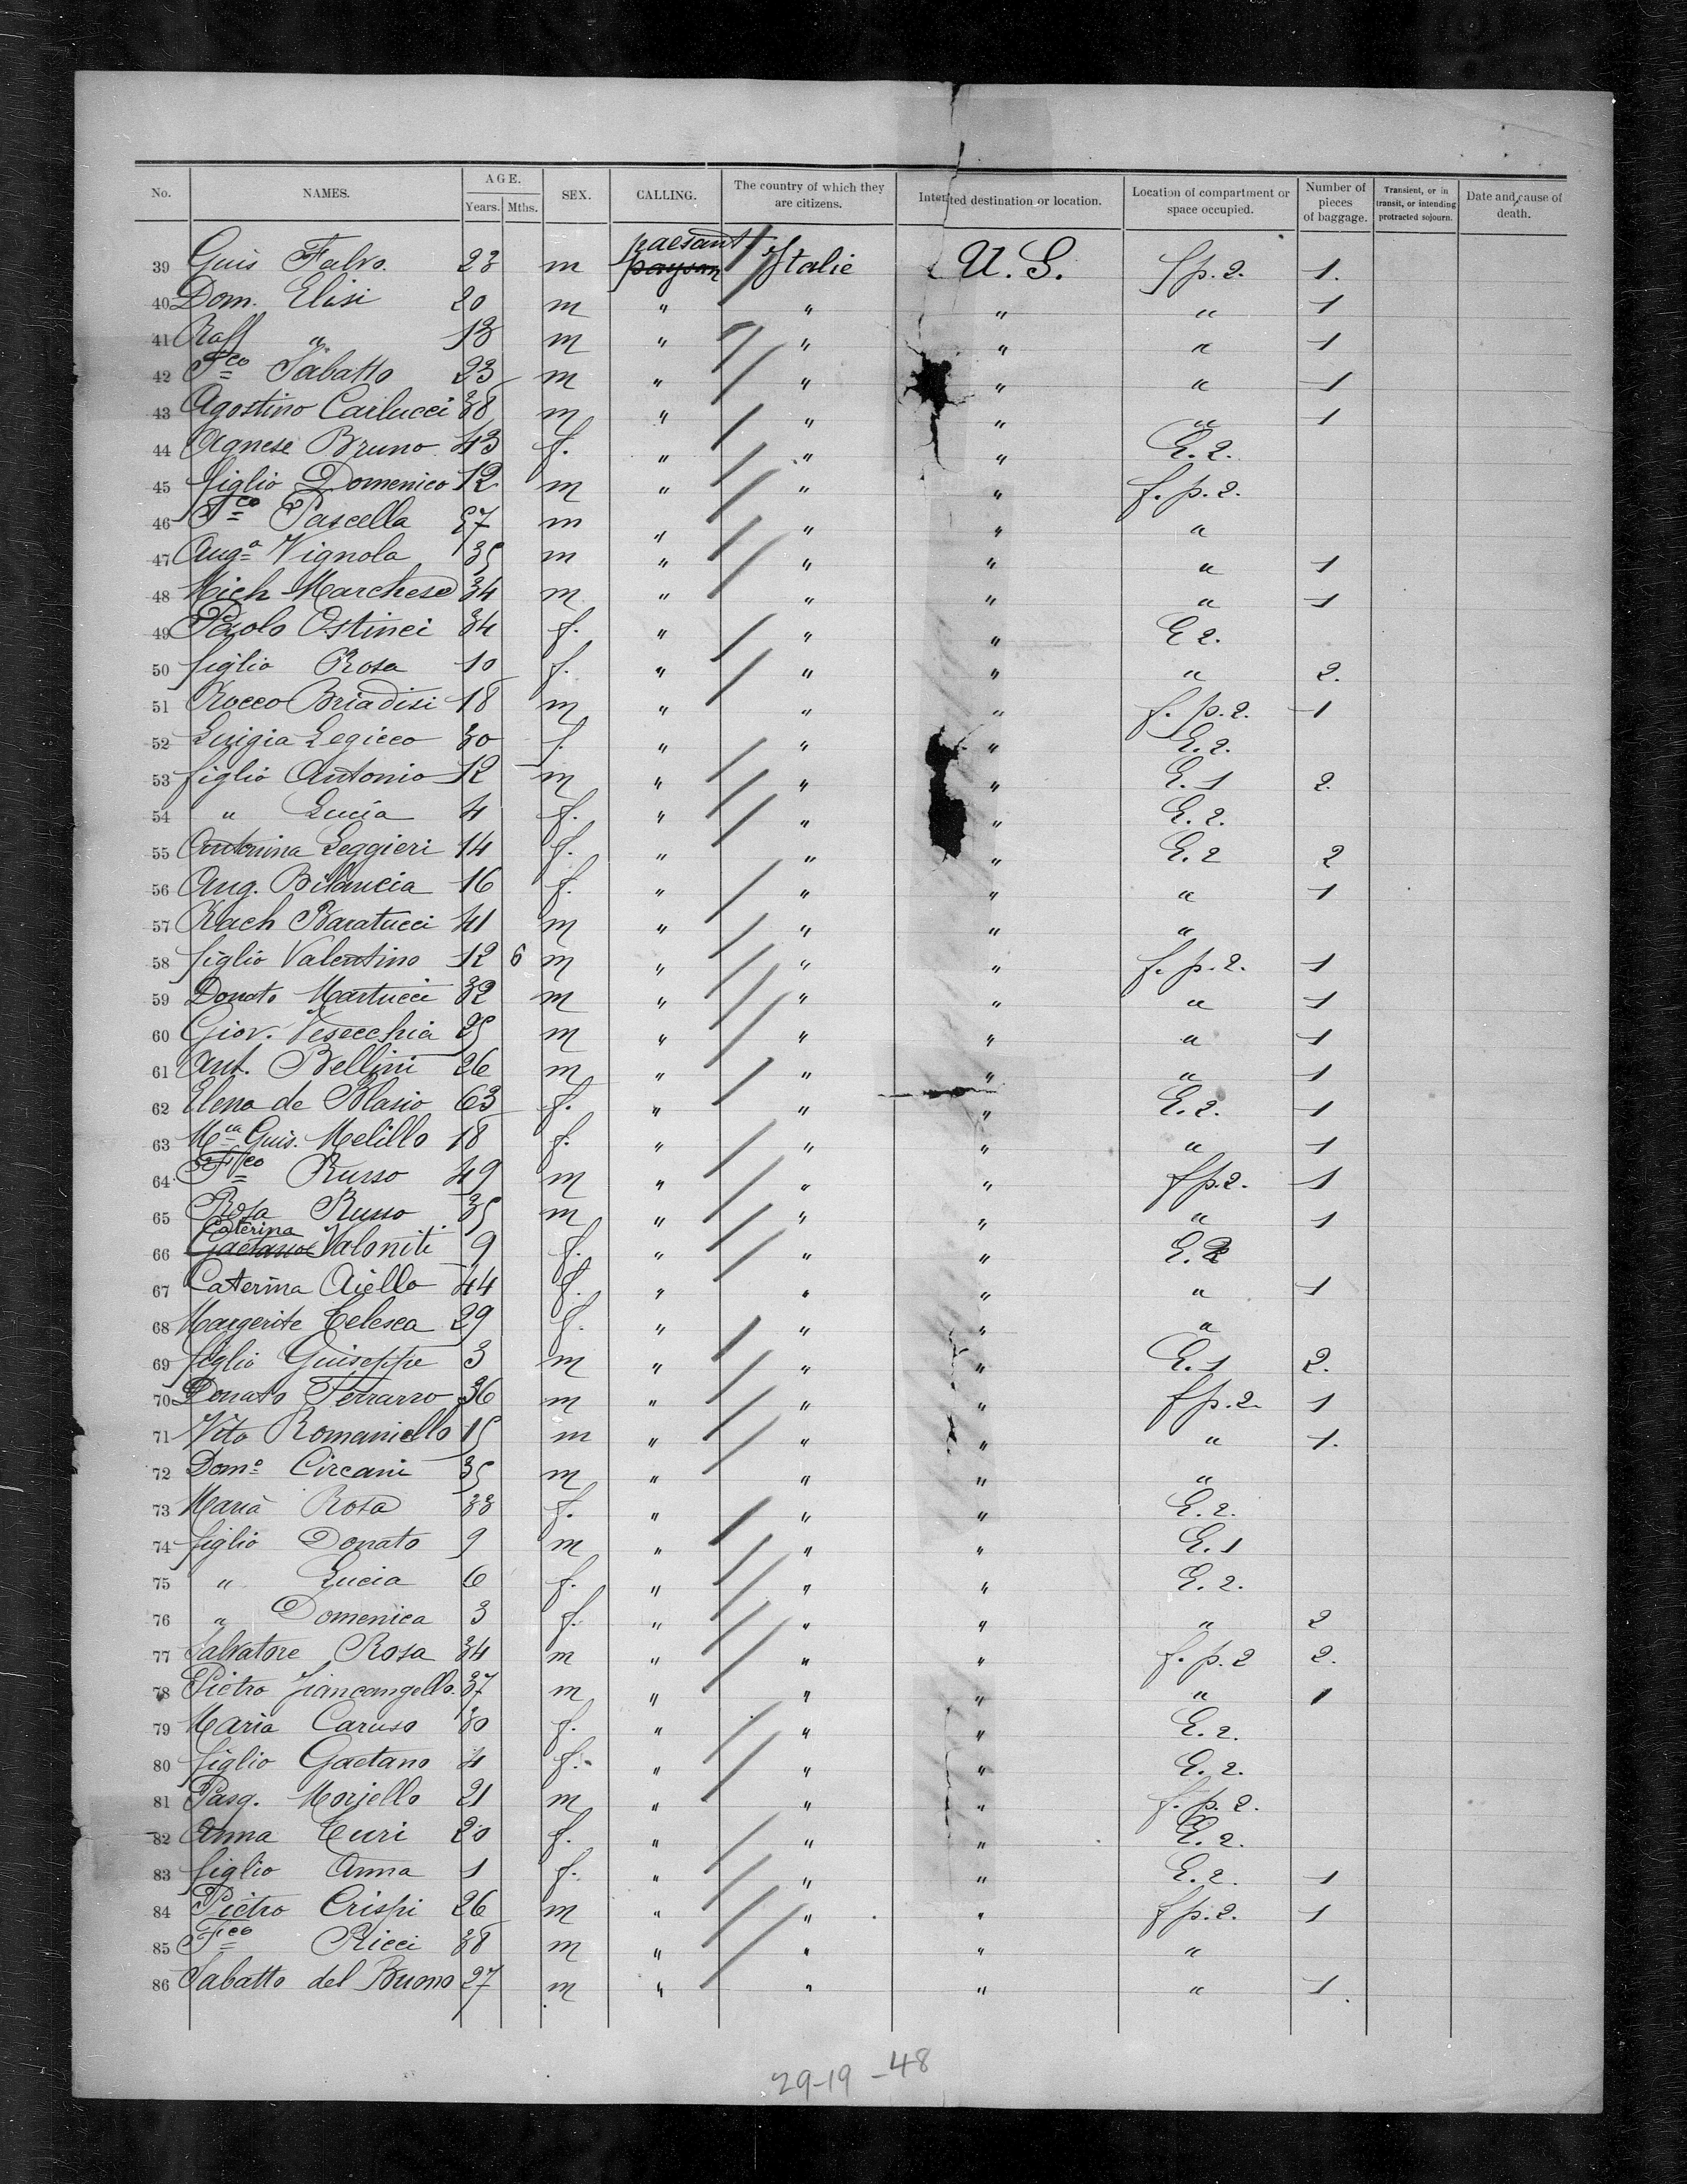 No. NAMES. AGE. Years. Mths. SEX. CALLING. The country of which they are citizens. Intended destination or location. Location of compartment or space occupied. Number of pieces of baggage. Transient, or in transit, or intending protracted sojourn. Date and cause of death.
39 Guis Falvo. 23 m paesant payson Italie U. S. f p. 2. 1.
40 Dom. Elisi 20 m " " " " 1
41 Raff " 13 m " " " " 1
42 Fco Sabatto 23 m " " " " 1
43 Agostino Carlucci 38 m " " " " 1
44 Agnese Bruno 43 f. " " " E. 2.
45 figlio Domenico 12 m " " " f. p. 2.
46 Fco Pascella 57 m " " " "
47 Anga Vignola 35 m " " " " 1
48 Mich Marchese 34 m " " " " 1
49 Paolo Ostinei 34 f. " " " E 2.
50 figlio Rosa 10 f. " " " " 2.
51 Rocco Briadisi 18 m " " " f. p. 2. 1
52 Luigia Legieco 30 f. " " " E. 2.
53 figlio Antonio 12 m " " " E. 1 2.
54 " Lucia 4 f. " " " E. 2.
55 Antonina Leggieri 14 f. " " " E. 2 2
56 Ang. Bilancia 16 f. " " " " 1
57 Rach Baratucci 41 m " " " "
58 figlio Valentino 12 6 m " " " f. p. 2. 1
59 Donato Martucci 32 m " " " " 1
60 Giov. Vesecchia 25 m " " " " 1
61 Ant. Bellini 26 m " " " " 1
62 Elena de Blasio 63 f. " " " E. 2. 1
63 Mca Guis. Melillo 18 f. " " " " 1
64 Fco Russo 49 m " " " f p. 2. 1
65 Rosa Russo 35 m " " " " 1
66 Caterina Gaetano Valoniti 9 f. " " " E. 2
67 Caterina Aiello 44 f. " " " " 1
68 Margerite Telesca 29 f. " " " "
69 figlio Guiseppe 3 m " " " E. 1 2.
70 Donato Ferrarro 36 m " " " f p. 2. 1
71 Vito Romaniello 15 m " " " " 1.
72 Domo Circani 35 m " " " "
73 Maria Rosa 33 f. " " " E. 2.
74 figlio Donato 9 m " " " E. 1
75 " Lucia 6 f. " " " E. 2.
76 " Domenica 3 f. " " " " 2
77 Salvatore Rosa 34 m " " " f. p. 2 2.
78 Pietro Giancangello. 37 m " " " " 1
79 Maria Caruso 30 f. " " " E. 2.
80 figlio Gaetano 4 f. " " " E. 2.
81 Pasq. Morjello 21 m " " " f. p. 2.
82 Anna Turi 20 f. " " " E. 2.
83 figlio Anna 1 f. " " " E. 2. 1
84 Pietro Crispi 26 m " " " f p. 2. 1
85 Fco Ricci 38 m " " " "
86 Sabatto del Buono 27 m " " " " 1
29-19-48